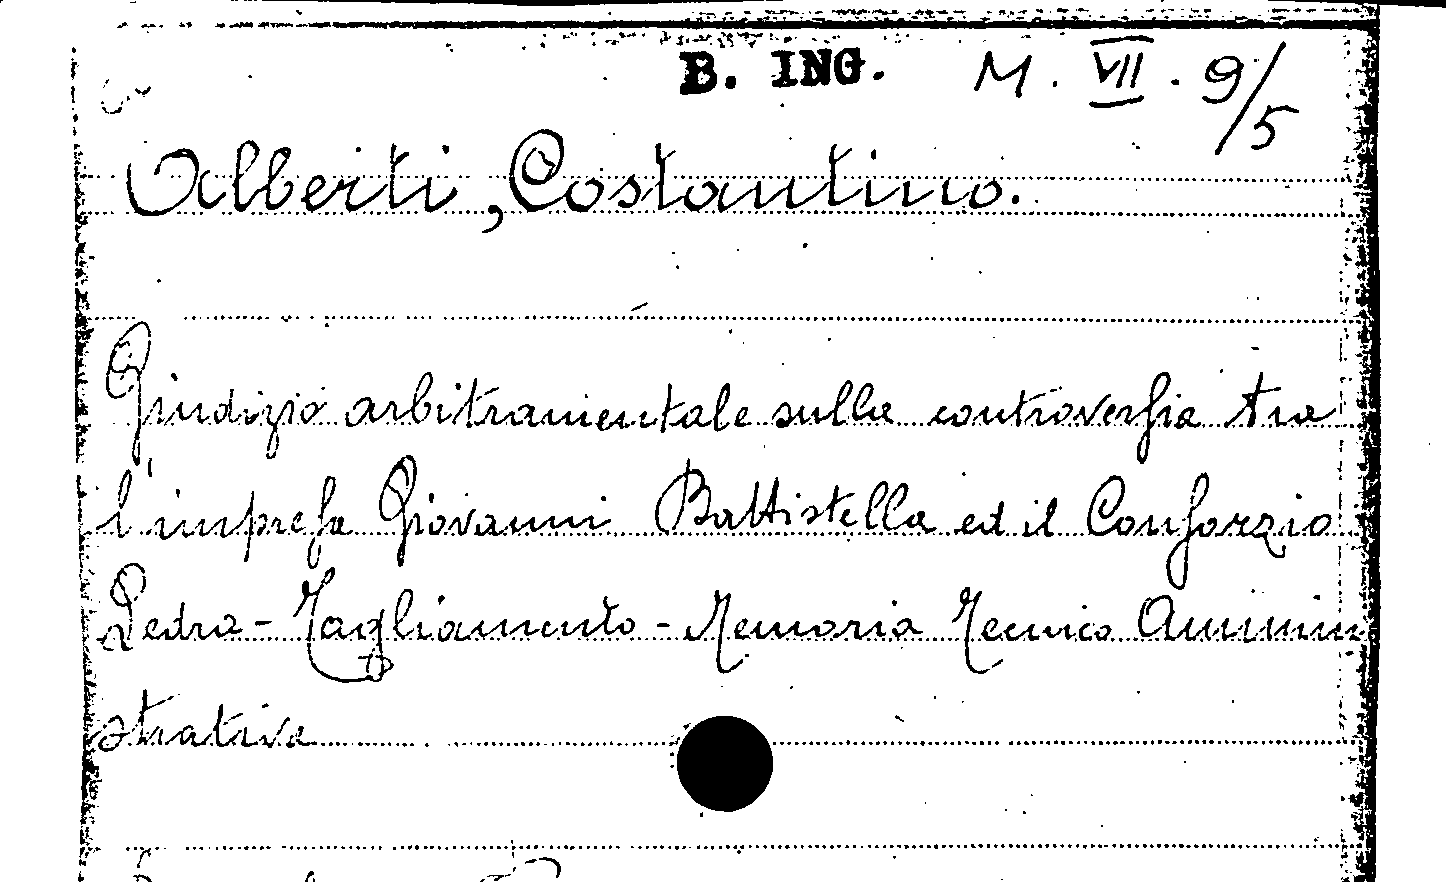 B. ING. M. VII. 9/5
Alberti, Costantino.
Giudizio arbitramentale sulla controversia tra
l'impresa Giovanni Battistella ed il Consorzio
Ledra - Tagliamento - Memoria Tecnico Ammin
strativa